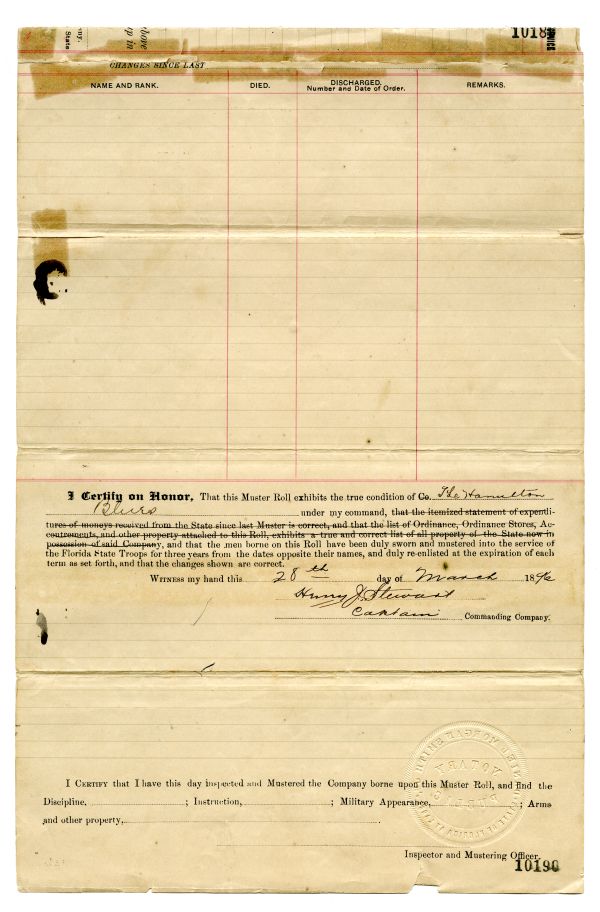 1018
ny.
State
above
up in
CHANGES SINCE LAST
NAME AND RANK.
DIED.
DISCHARGED.
Number and Date of Order.
REMARKS.
I Certify on Honor, That this Muster Roll exhibits the true condition of Co. The Hamilton
Blues under my command, that the itemized statement of expendi-
tures of moneys received from the State since last Muster is correct, and that the list of Ordinance, Ordinance Stores, Ac-
coutrements, and other property attached to this Roll, exhibits a true and correct list of all property of the State now in
possession of said Company, and that the men borne on this Roll have been duly sworn and mustered into the service of
the Florida State Troops for three years from the dates opposite their names, and duly re-enlisted at the expiration of each
term as set forth, and that the changes shown are correct.
WITNESS my hand this 28th day of March 189
Henry J. Stewart
Captain Commanding Company.
I CERTIFY that I have this day inspected and Mustered the Company borne upon this Muster Roll, and find the
Discipline, ; Instruction, ; Military Appearance, ; Arms
and other property, .
NOTARY
PUBLIC
Inspector and Mustering Officer.
10190